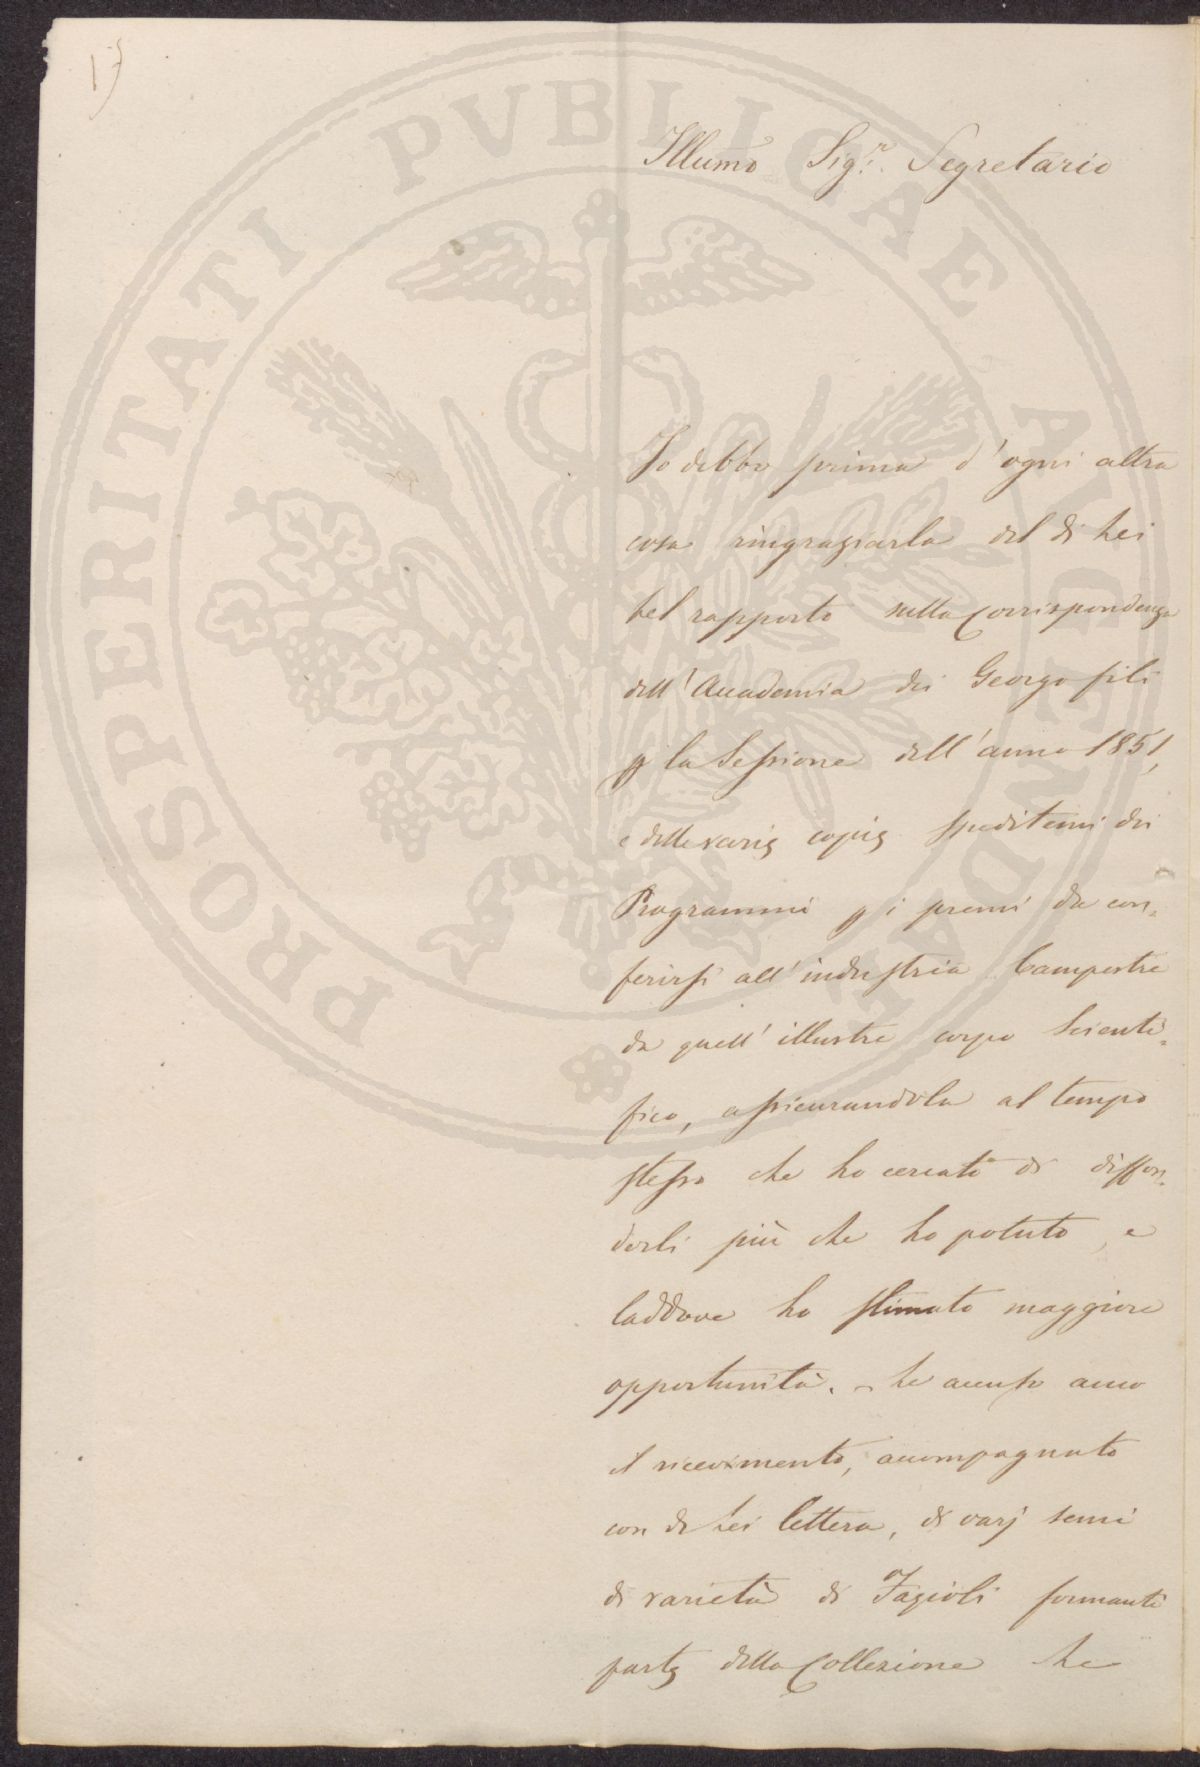 17
PROSPERITATI PUBLICAE AUGENDAE
Illumo Sig.r Segretario
Io debbo prima d'ogni altra
cosa ringraziarla del di Lei
bel rapporto sulla Corrispondenza
dell'Accademia dei Georgofili
p la Sessione dell'anno 1851,
e delle varie copie speditemi dei
Programmi p i premi da con=
ferirsi all'industria Campestre
da quell'illustre corpo Scienti=
fico, assicurandola al tempo
stesso che ho cercato di diffon=
derli più che ho potuto, e
laddove ho stimato maggiore
opportunità. - Le accuso anco
il ricevimento, accompagnato
con di Lei lettera, di varj semi
di varietà di Fagioli formanti
parte della Collezione che